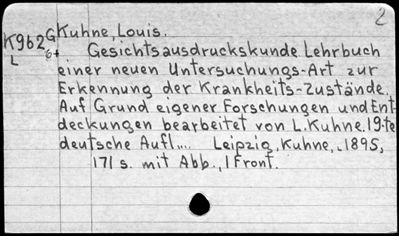 2
K962G Kuhne, Louis.
L 6t Gesichtsausdruckskunde Lehrbuch
einer neuen Untersuchungs-Art zur
Erkennung der Krankheits-Zustände.
Auf Grund eigener Forschungen und Ent-
deckungen bearbeitet von L. Kuhne. 19-te
deutsche Aufl.... Leipzig, Kuhne, 1895,
171 s. mit Abb., 1 Front.